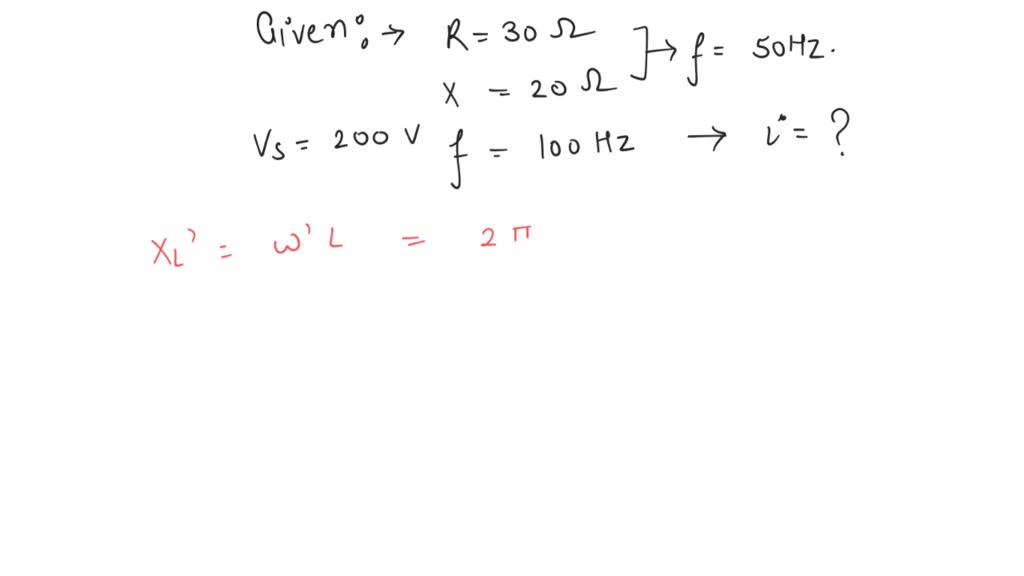 Given: → R = 30 Ω
X = 20 Ω ]→ f = 50Hz.
Vs = 200 V f = 100 Hz → i = ?
XL' = ω' L = 2 π